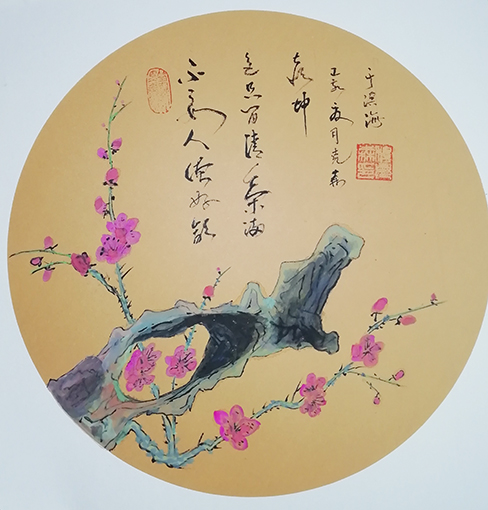 不要人誇好颜
色只留清气满
乾坤
亥夏月克
于滨海